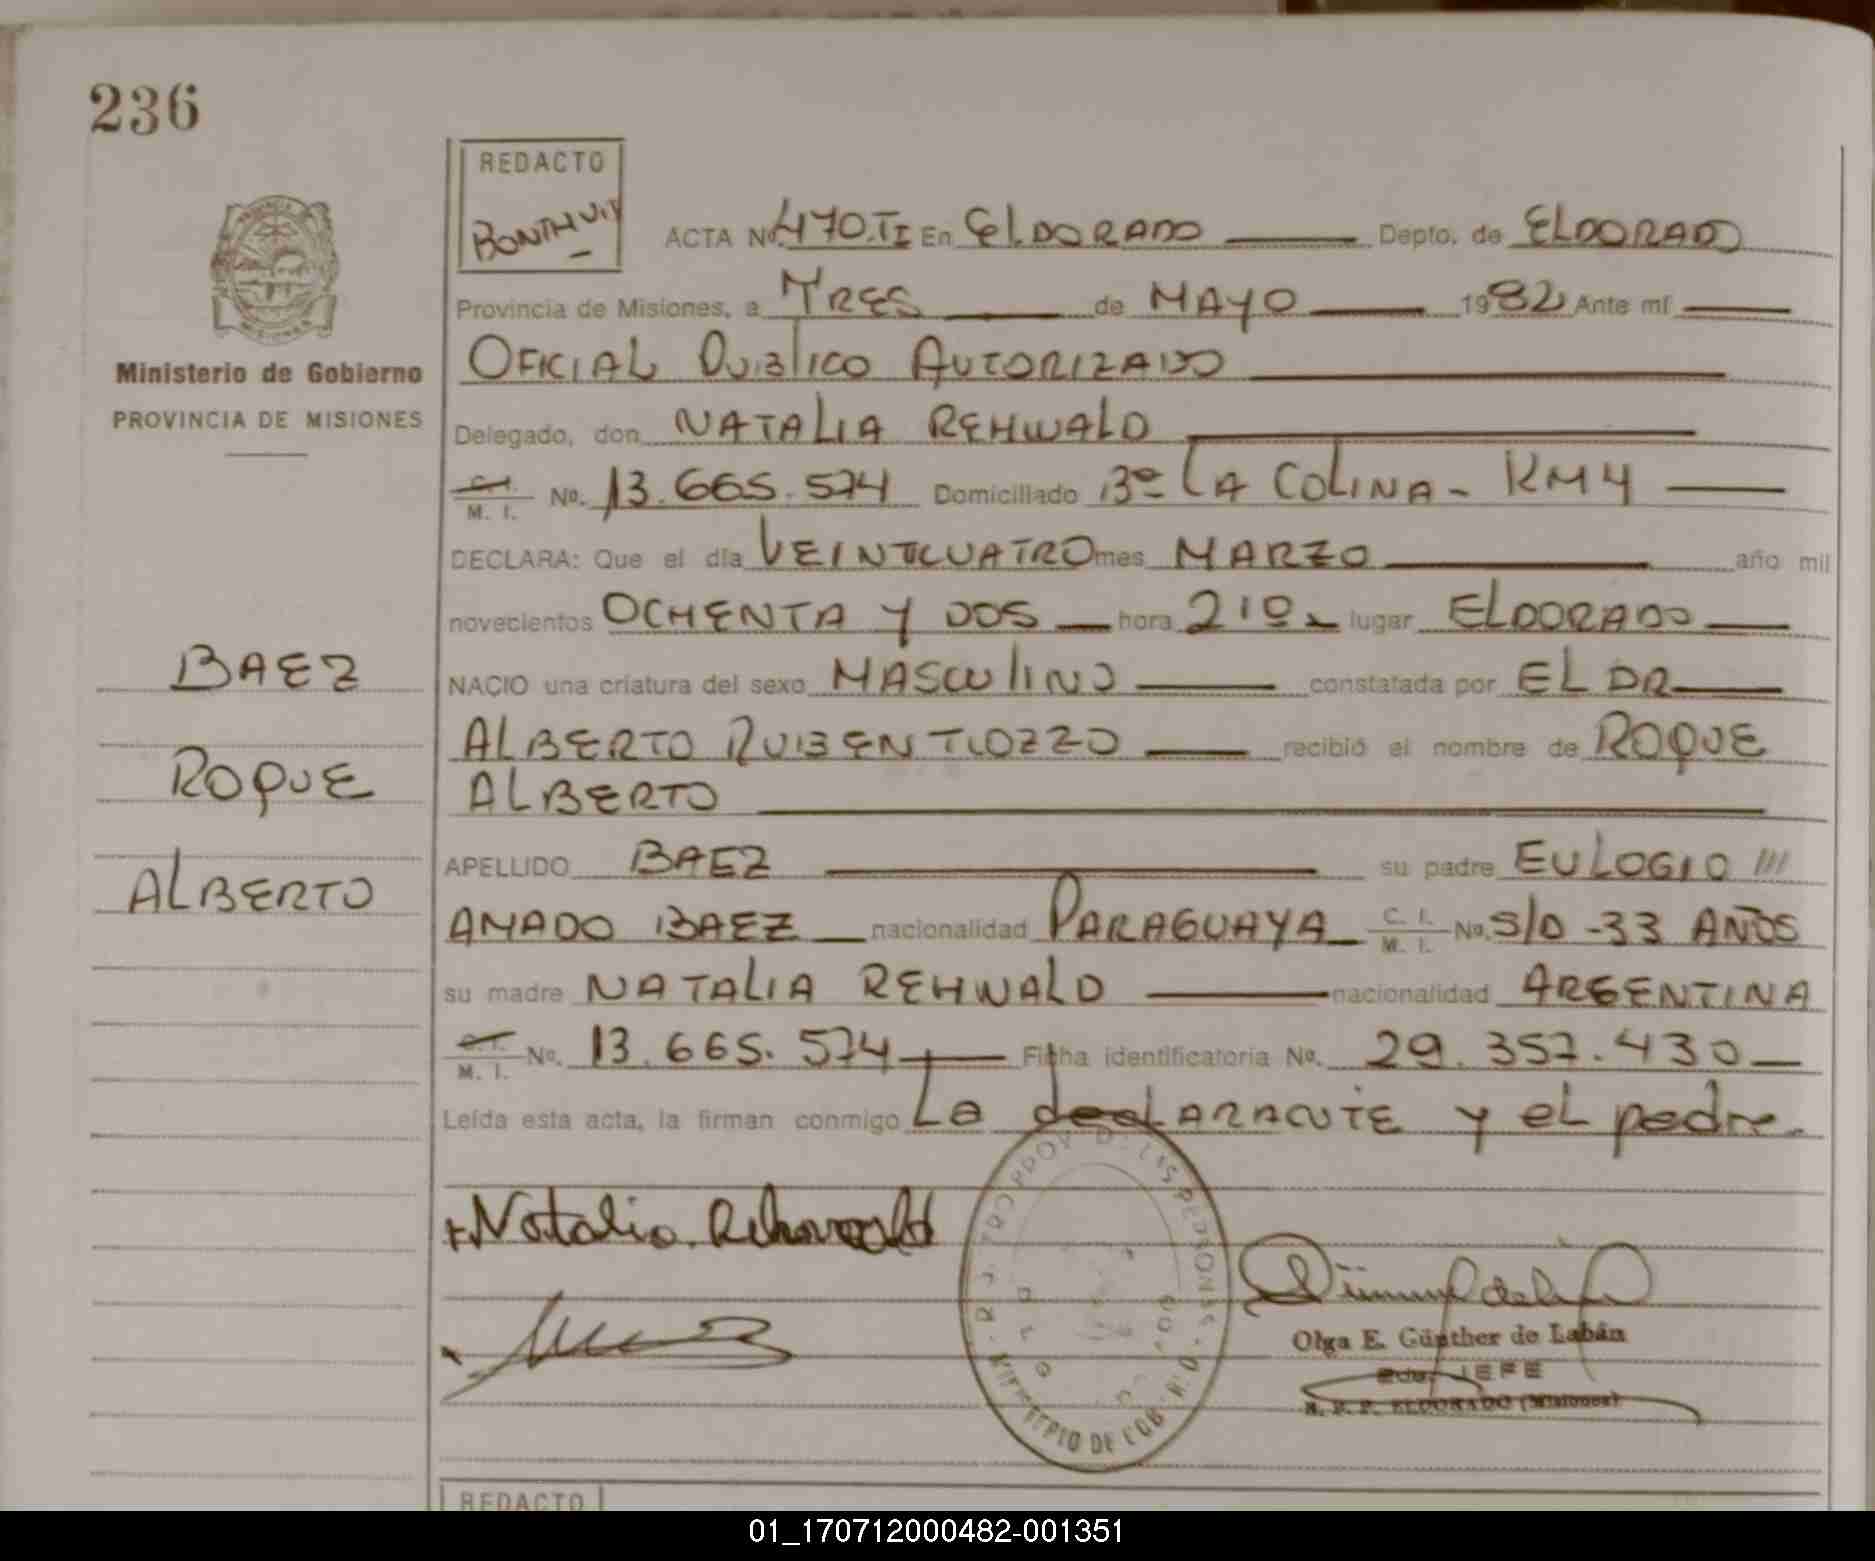 236
REDACTO
BONTHUIT
ACTA No. 470.TI En ELDORADO Depto. de ELDORADO
Provincia de Misiones, a TRES de MAYO 1982 Ante mí
OFICIAL PUBLICO AUTORIZADO
Ministerio de Gobierno
PROVINCIA DE MISIONES
Delegado, don NATALIA REHWALD
C. I. M. I. No. 13.665.574 Domiciliado 13º LA COLINA - KM 4
DECLARA: Que el día VEINTICUATRO mes MARZO año mil
novecientos OCHENTA Y DOS hora 21º lugar ELDORADO
BAEZ
NACIO una criatura del sexo MASCULINO constatada por EL DR
ALBERTO RUBEN TIOZZO recibió el nombre de ROQUE
ROQUE
ALBERTO
APELLIDO BAEZ su padre EULOGIO
ALBERTO
AMADO BAEZ nacionalidad PARAGUAYA C. I. M. I. No. S/D - 33 AÑOS
su madre NATALIA REHWALD nacionalidad ARGENTINA
C. I. M. I. No. 13.665.574 Ficha identificatoria No. 29.357.430
Leída esta acta, la firman conmigo La declarante y el padre.
Natalia Rehwald
Olga E. Günther de Labán
JEFE
R. P. P. ELDORADO (Misiones)
REDACTO
01_170712000482-001351